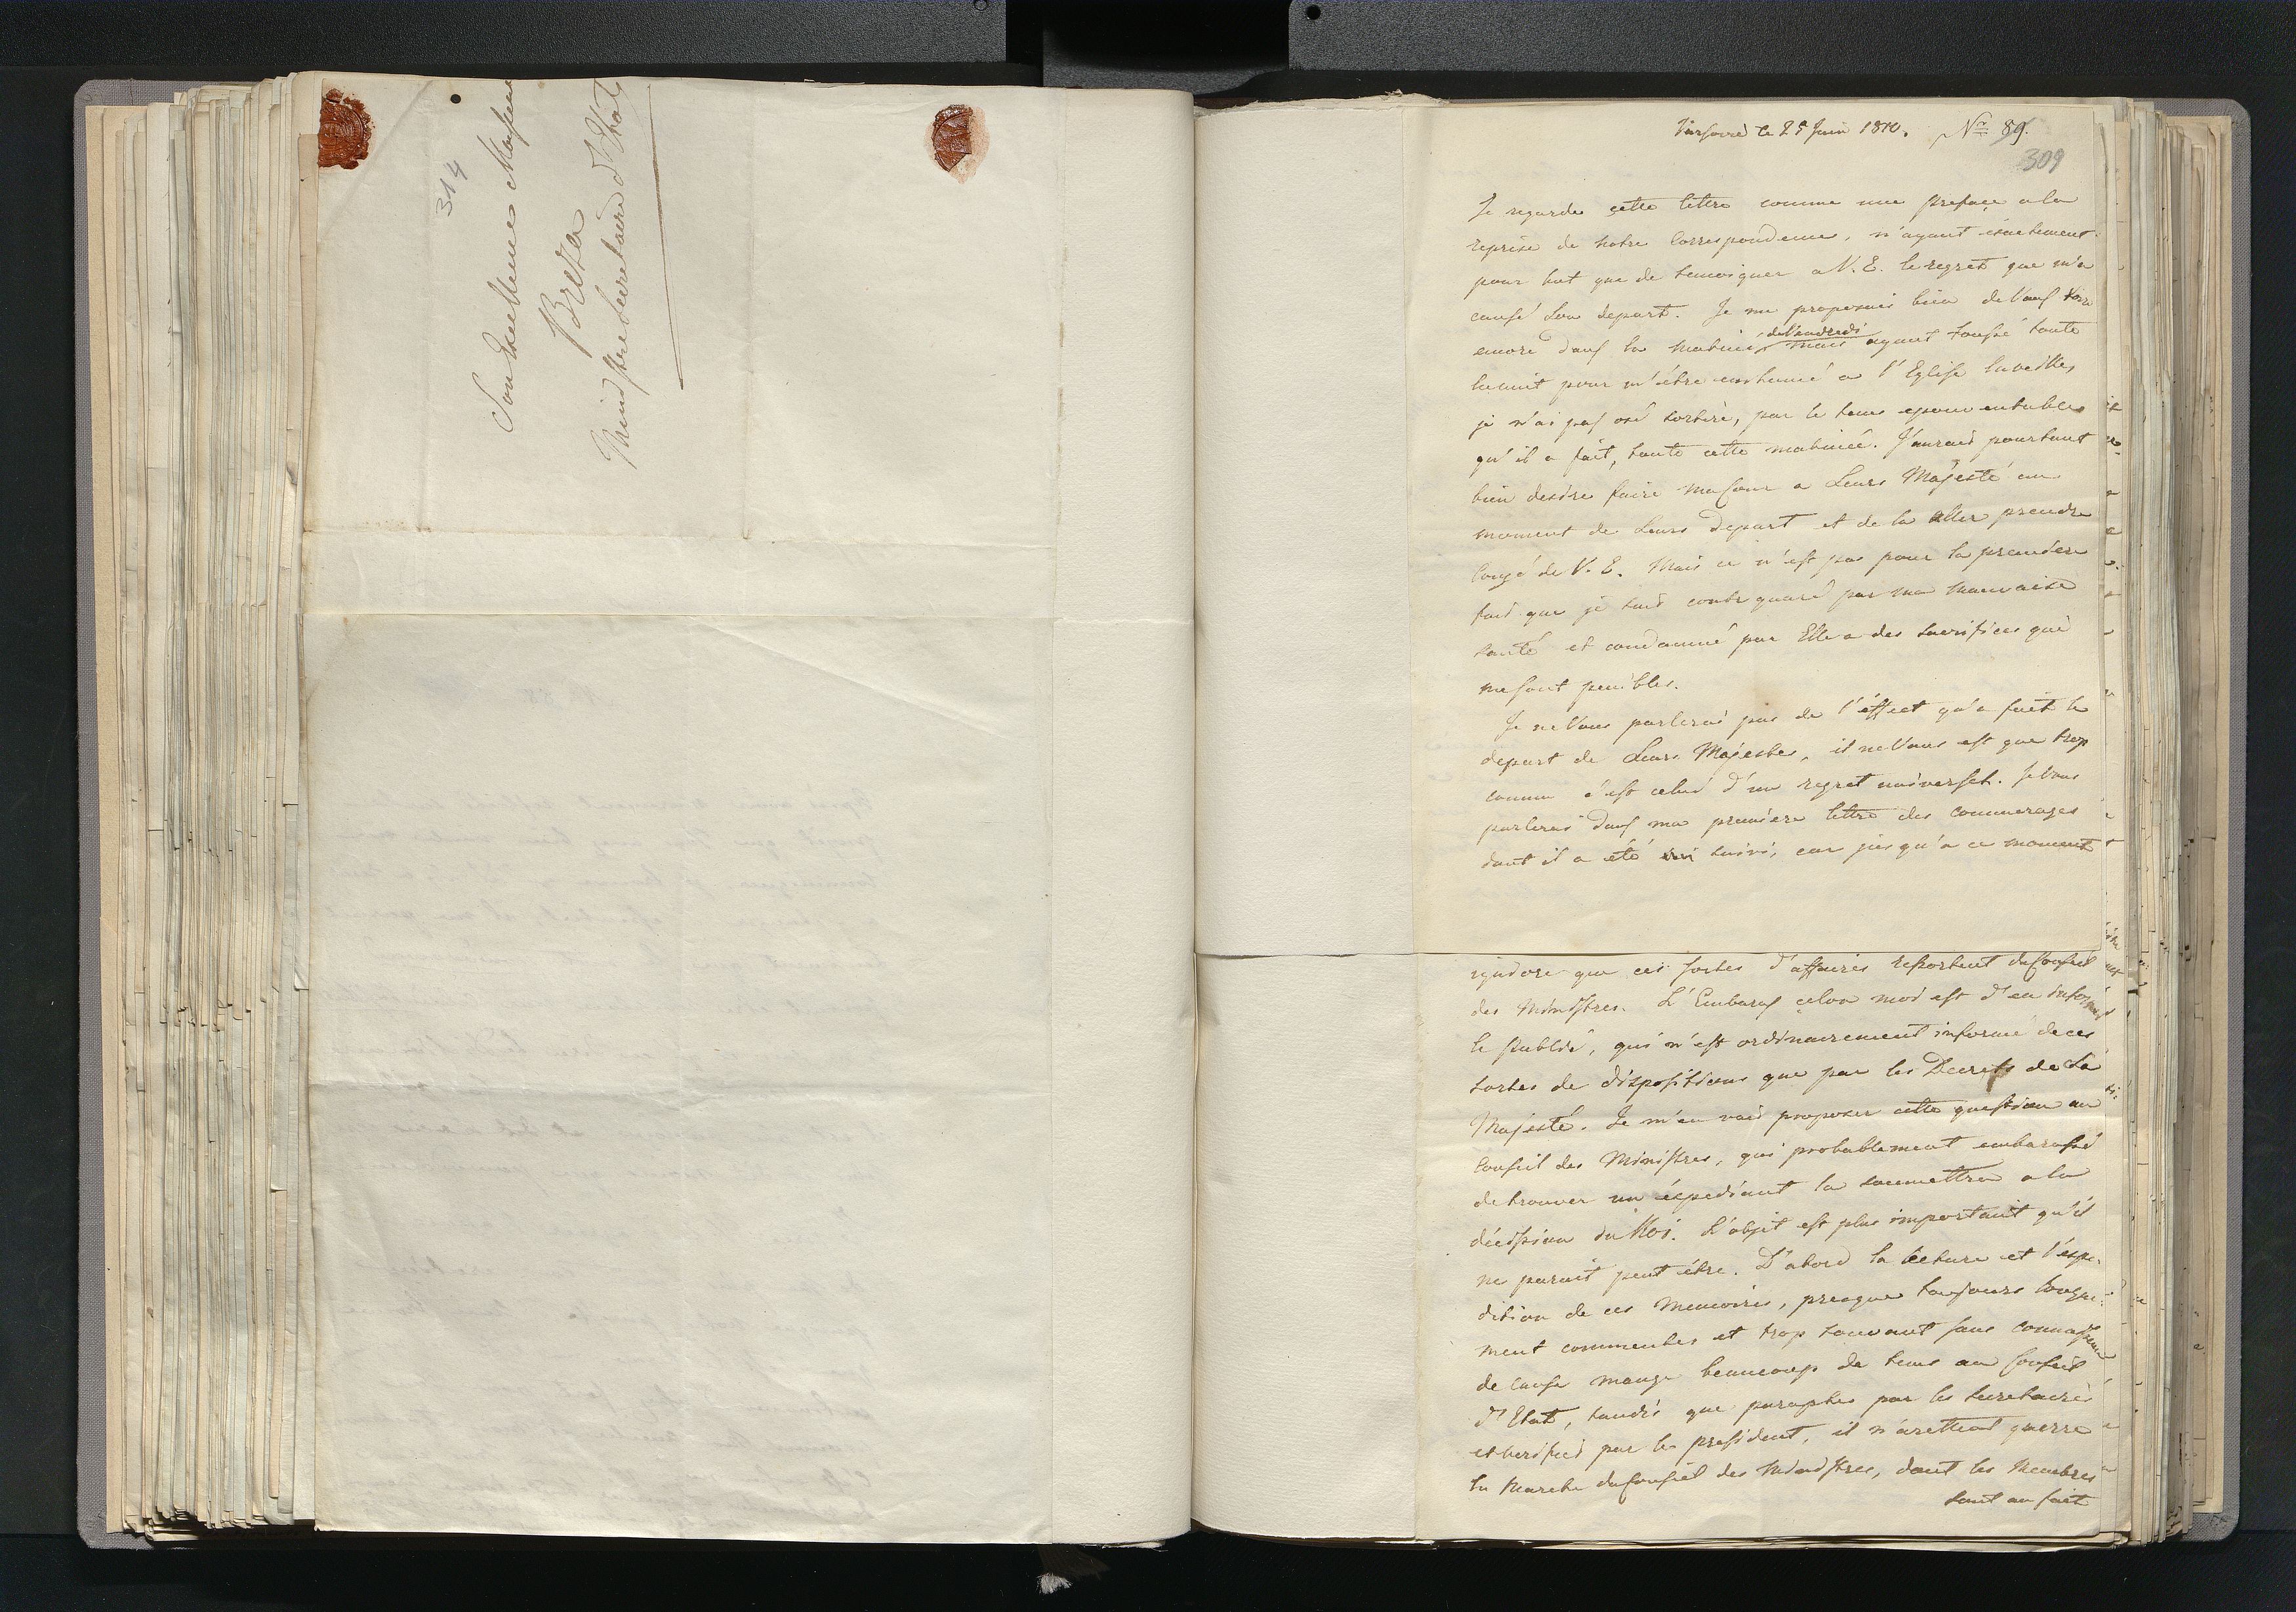 314
Son Excellence Monsieur
Breza
Ministre Secretaire d'Etat
Varsovie le 25 Juin 1810. Nr 89.
309
Je regarde cette lettre comme une preface a la
reprise de notre Correspondence, n'ayant éxactement
pour but que de temoigner a V. E. le regret que m'a
causé Son depart. Je me proposais bien de Vous voir
encore dans la matinée de Vendredi mais ayant toussé toute
la nuit pour m'être enrhumé a l'Eglise la veille,
je n'ai pas osé sortire, par le tems epouventable
qu'il a fait, toute cette matinée. J'aurais pourtant
bien desire faire ma Cour a Leurs Majesté au
moment de Leurs Depart et de la aller prendre
Congé de V. E. Mais ce n'est pas pour la premiere
fois que je suis contrquaré par ma mauvaise
santé et condamné par Elle a des sacrifices qui
me sont penibles.
Je ne Vous parlerai pas de l'éffect qu'a fait le
depart de Leurs Majestes, il ne Vous est que trop
connu c'est celui d'un regret universel. Je Vous
parlerai dans ma premiere lettre des commerages
dont il a été suivi, car jusqu'a ce moment
que ces sortes d'affaires ressortent du Conseil
des Ministres. L'Embaras celon moi est d'en informer
le Publié, qui n'est ordinairement informé de ces
sortes de dispositions que par les Decrets de Sa
Majesté. Je m'en vais proposer cette question au
Conseil des Ministres, qui probablement embarassé
de trouver un éxpediant la soumettra a la
décission du Roi. L'objet est plus important qu'il
ne parait peut être. D'abord la lecture et l'expe-
dition de ces memoires, presque toujours longue-
ment commentes et trop souvant sans connaissance
de cause mange beaucoup de tems au Conseil
d'Etat, tandis que paraphes par les Secretaires
et verifies par le president, il n'arettent guerre
la Marche du Conseil des Ministres, dont les Membres
sont au fait